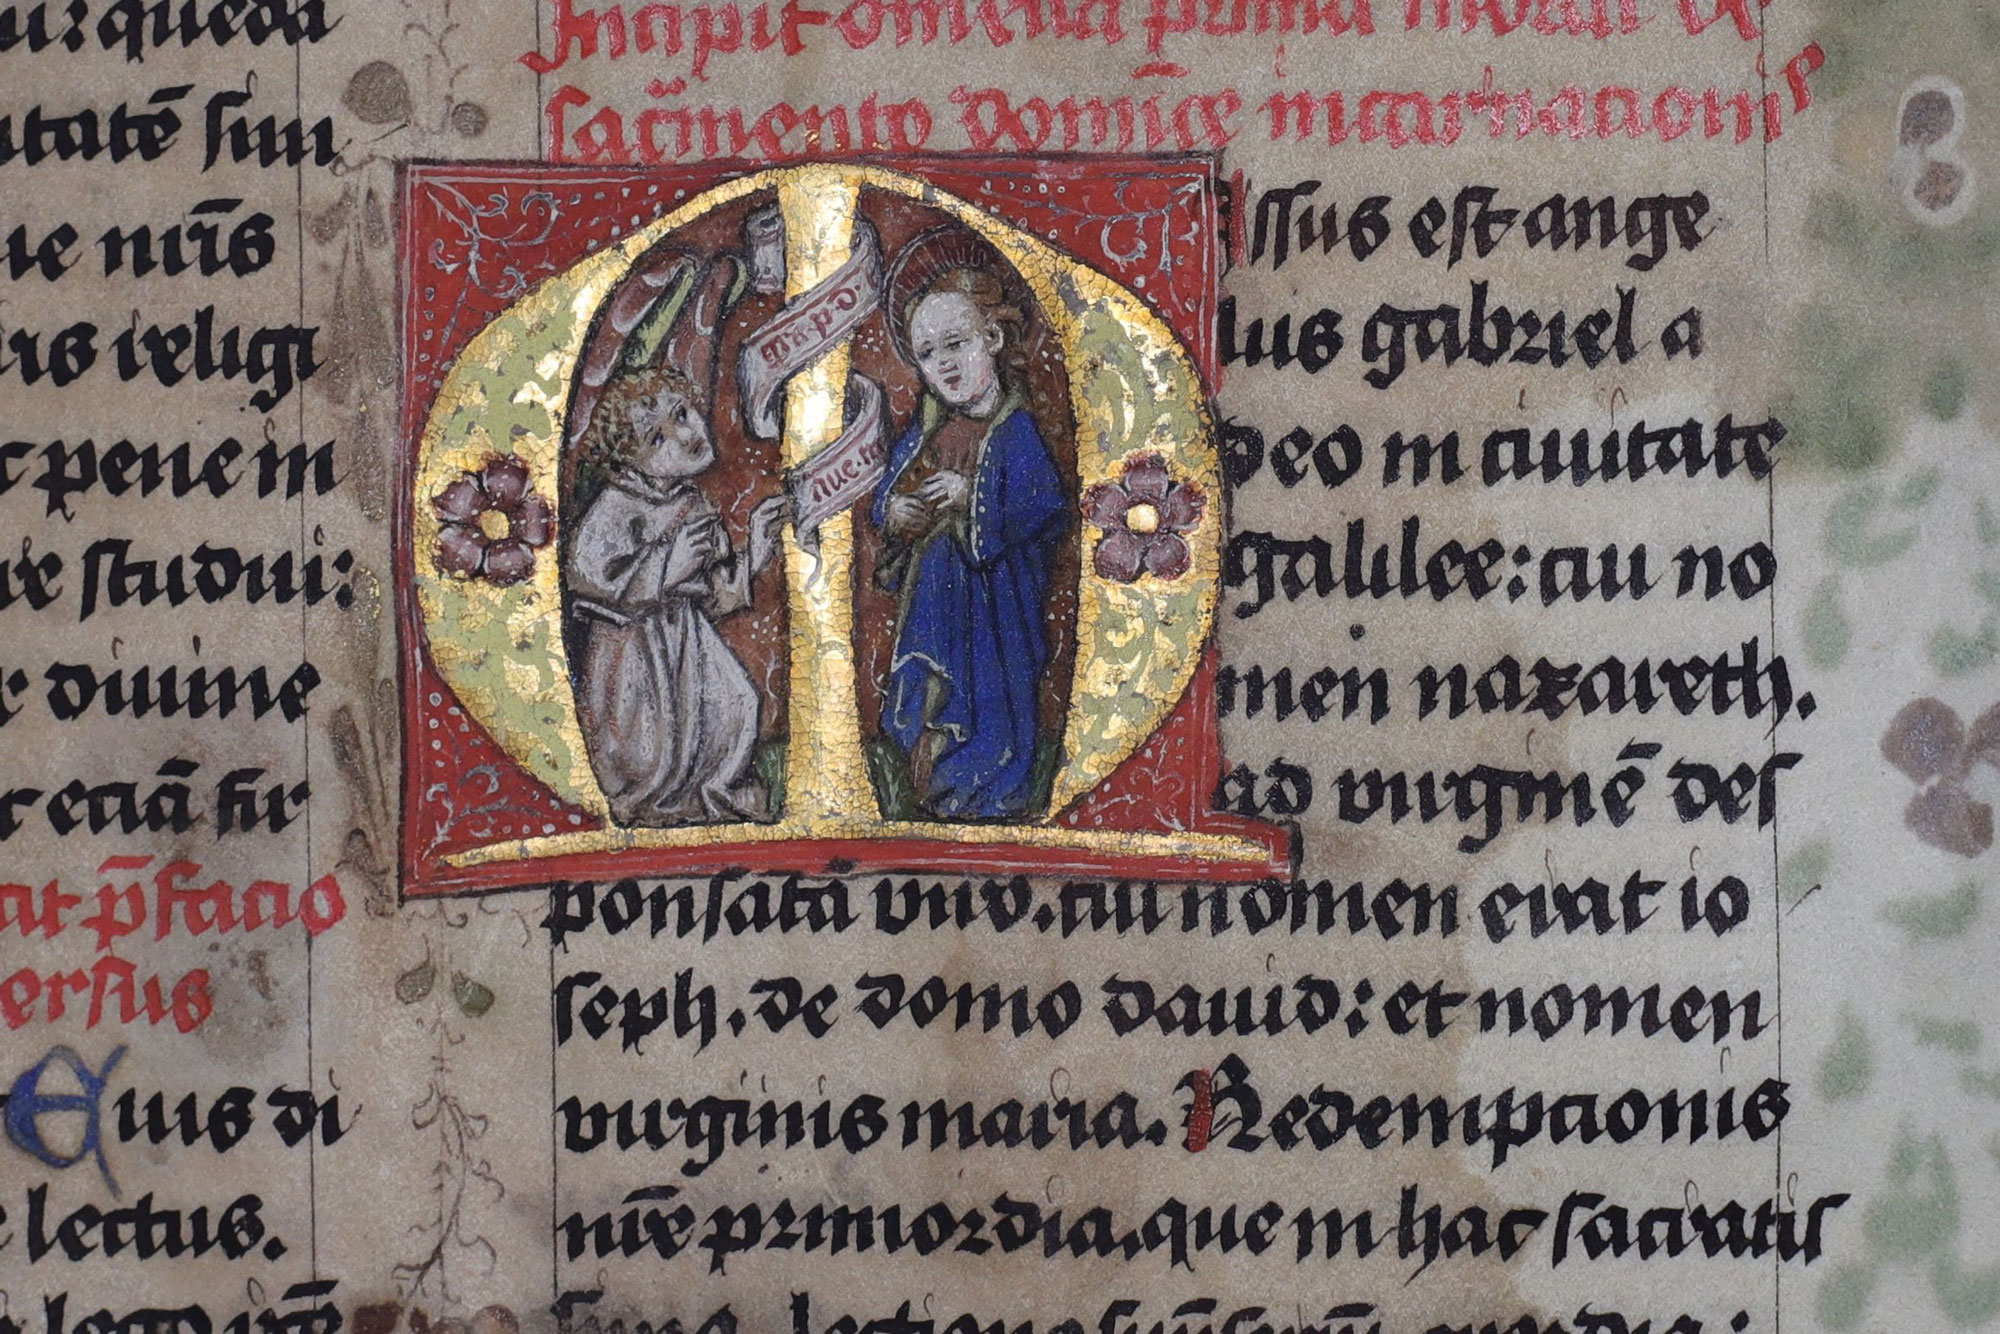 queda
sun
nr̄is
religi
pene in
studui:
diuine
eciā fir
p̄facio
ersus
Eius di
lectus.
Incipit omelia prima
sacr̄mento domīce incarnacionis
Missus est ange
lus gabriel a
deo in ciuitate
galilee: cui no
men nazareth.
ad virginē des
ponsatā viro. cui nomen erat io
seph. de domo dauid: et nomen
virginis maria. Redempcionis
nr̄e primordia. que in hac sacratis